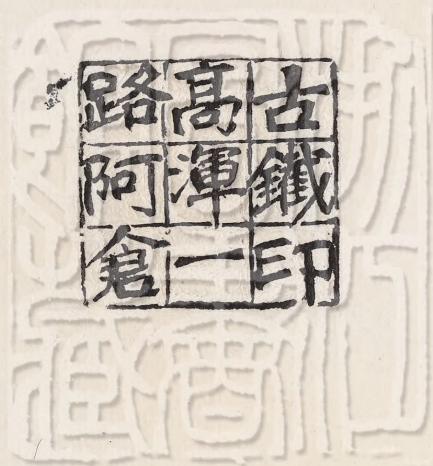 古鐵印
高渾一
路阿倉